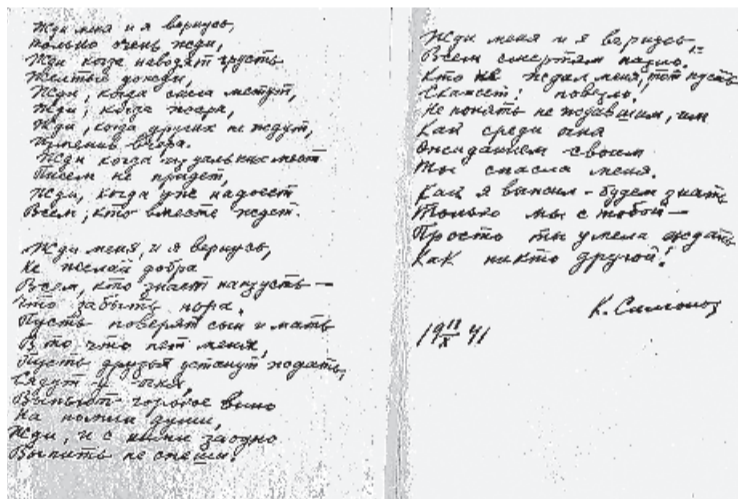 Жди меня и я вернусь,
только очень жди,
Жди когда наводят грусть
Желтые дожди,
Жди, когда снега метут,
Жди когда жара,
Жди, когда других не ждут,
Изменив вчера.
Жди когда из дальних мест
Писем не придет,
Жди, когда уж надоест
Всем, кто вместе ждет.
Жди меня, и я вернусь,
Не желай добра
Всем, кто знает наизусть —
Что забыть пора.
Пусть поверят сын и мать
В то что нет меня,
Пусть друзья устанут ждать,
Сядут у огня,
Выпьют горькое вино
На помин души,
Жди, и с ними заодно
Выпить не спеши!
Жди меня и я вернусь,
Всем смертям назло.
Кто не ждал меня, тот пусть
Скажет: повезло.
Не понять не ждавшим, им
Как среди огня
Ожиданием своим
Ты спасла меня.
Как я выжил - будем знать
Только мы с тобой —
Просто ты умела ждать
Как никто другой!
К. Симонов
19 41